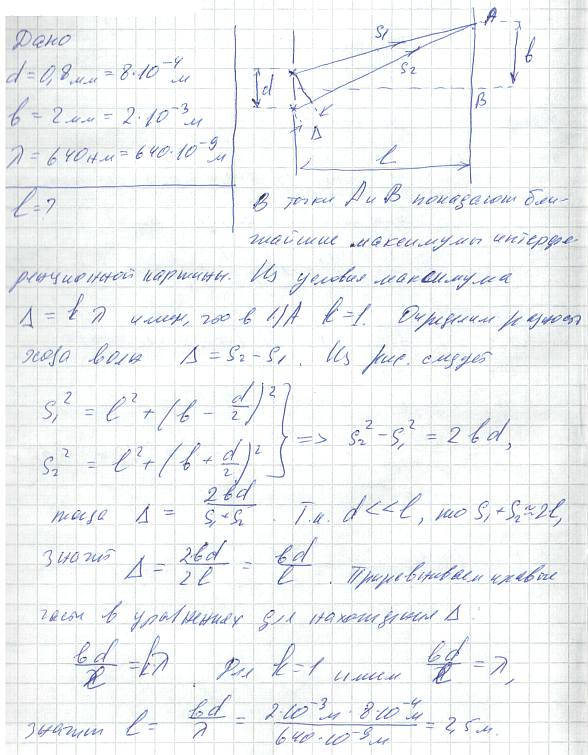 Дано
d = 0,8 мм = 8·10⁻⁴ м
b = 2 мм = 2·10⁻³ м
λ = 640 нм = 640·10⁻⁹ м
l = ?
S₁
S₂
A
B
b
d
Δ
l
В точки A и B попадают бли-
жайшие максимумы интерфе-
ренционной картины. Из условия максимума
Δ = k λ имеем, что в т/A k = 1. Определим разность
хода волн Δ = S₂ - S₁. Из рис. следует
S₁² = l² + (b - d/2)²
S₂² = l² + (b + d/2)² } => S₂² - S₁² = 2bd,
тогда Δ = 2bd/(S₁+S₂). Т.к. d << l, то S₁+S₂ ≈ 2l,
значит Δ = 2bd/2l = bd/l. Приравниваем правые
части в уравнениях для нахождения Δ.
bd/l = kλ. Для k = 1 имеем bd/l = λ,
значит l = bd/λ = (2·10⁻³ м · 8·10⁻⁴ м)/(640·10⁻⁹ м) = 2,5 м.